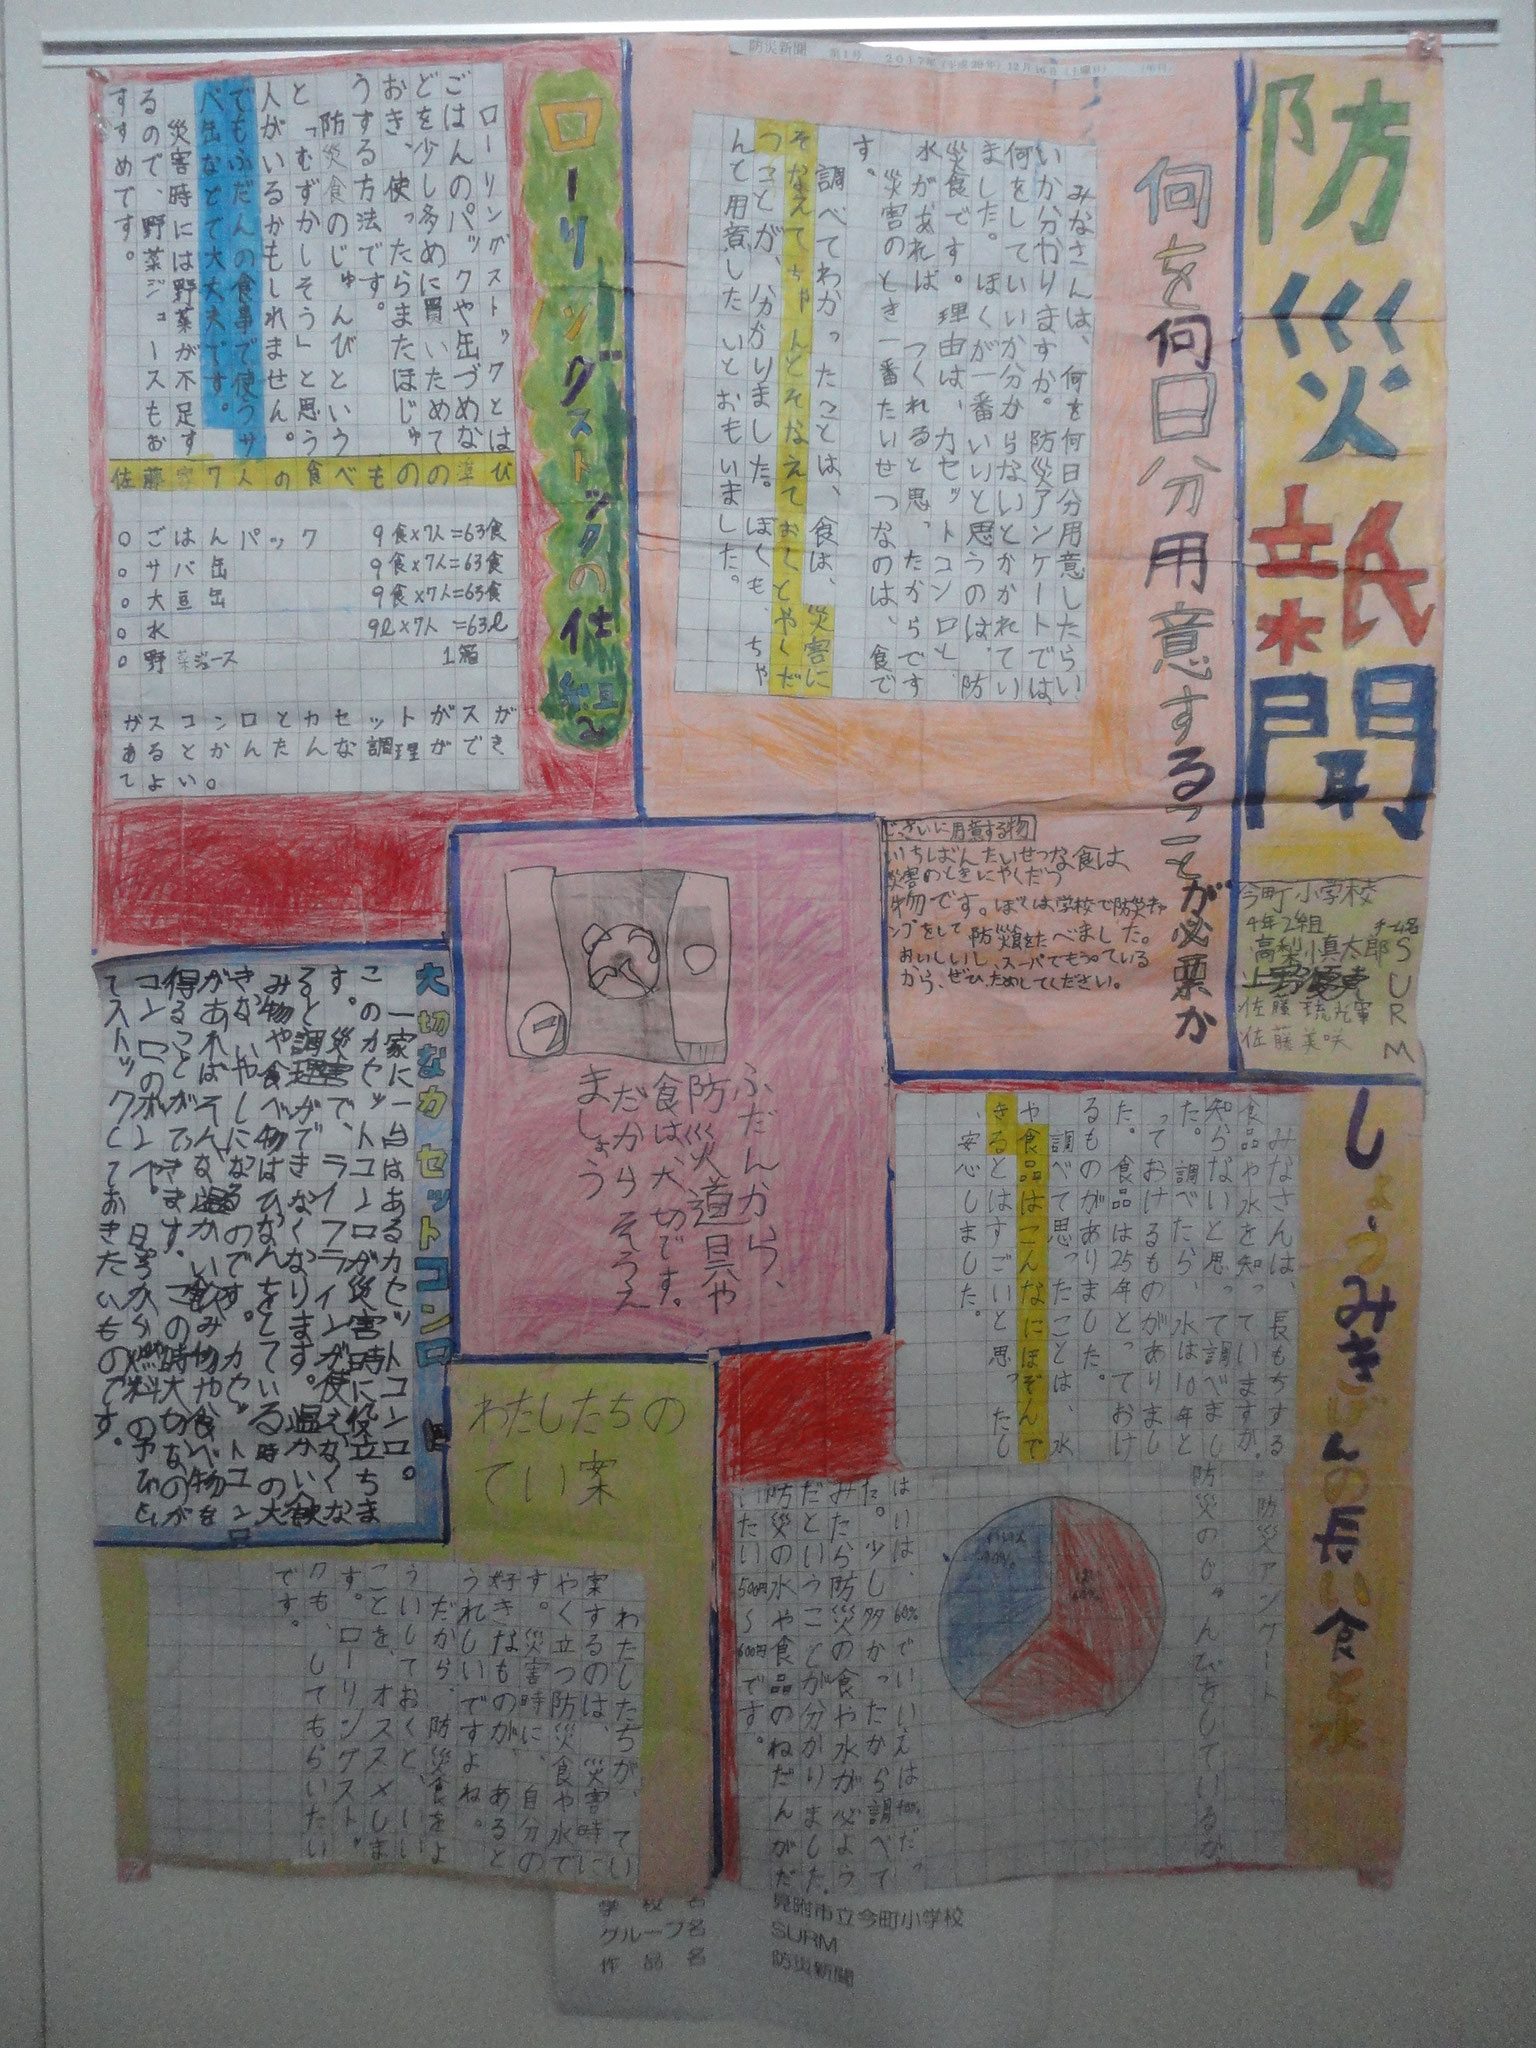 防災新聞 第1号 2017年(平成29年)12月16日(土曜日)
防災新聞
今町小学校
4年2組
チーム名
SURM
高梨慎太郎
佐藤琉光
佐藤美咲
何を何日分用意することが必要か
みなさんは、何を何日分用意したらい
いか分かりますか。防災アンケートでは、
何をしていいか分からないとかかれてい
ました。ぼくが一番いいと思うのは、防
災食です。理由は、カセットコンロと、
水があれば つくれると思ったからです
。災害のとき一番たいせつなのは、食で
す。
調べてわかったことは、食は、災害に
そなえてちゃんとそなえておくとやくだ
つことが、分かりました。ぼくも、ちゃ
んと用意したいとおもいました。
じっさいに用意する物
いちばんたいせつな食は、
災害のときにやくだつ
物です。ぼくは学校で防災キャ
ンプをして 防災食をたべました。
おいしいし、スーパでもうっている
から、ぜひ、ためしてください。
ローリングストックの仕組み
ローリングストックとは
ごはんのパックや缶づめな
どを少し多めに買いためて
おき、使ったらまたほじゅ
うする方法です。
防災食のじゅんびという
と「むずかしそう」と思う
人がいるかもしれません。
でもふだんの食事で使うサ
バ缶などで大丈夫です。
災害時には野菜が不足す
るので、野菜ジュースもお
すすめです。
佐藤家7人の食べものの準び
○ごはんパック 9食×7人=63食
○サバ缶 9食×7人=63食
○大豆缶 9食×7人=63食
○水 9ℓ×7人=63ℓ
○野菜ジュース 1箱
ガスコンロとカセットガスが
あるとかんたんな調理ができ
てよい。
ふだんから、
防災道具や
食は、大切です。
だからそろえ
ましょう
大切なカセットコンロ
一家に一台はあるカセットコンロ。
このカセットコンロが災害時に役立ちま
す。災害で、ライフラインが使えなくな
ると調理ができなくなります。温かい飲
み物や食べ物はひなんをしている時の大
きないやしになるのです。カセットコンロ
があればそんな温かい飲み物や食べ物を
得ることができます。この時大切なのが
コンロのボンベ。日ごろから燃料の予びとし
てストックしておきたいものです。
しょうみきげんの長い食と水
みなさんは、長もちする
食品や水を知っていますか。
知らないと思って調べまし
た。調べたら、水は10年と
っておけるものがありまし
た。食品は25年とっておけ
るものがありました。
調べて思ったことは、水
や食品はこんなにほぞんで
きるとはすごいと思ったし
、安心しました。
防災アンケート
防災のじゅんびをしているか。
はい
60%
いいえ
40%
はいは、60%でいいえは40%だっ
た。少し多かったから調べて
みたら防災の食や水が必よう
だということが分かりました。
防災の水や食品のねだんがだ
いたい500円〜600円です。
わたしたちの
てい案
わたしたちが、てい
案するのは、災害時に
やく立つ防災食や水で
す。災害時に、自分の
好きなものが、あると
うれしいですよね。
だから、防災食をよ
ういしておくと、いい
ことを、オススメしま
す。ローリングストッ
クも、してもらいたい
です。
学校名 見附市立今町小学校
グループ名 SURM
作品名 防災新聞